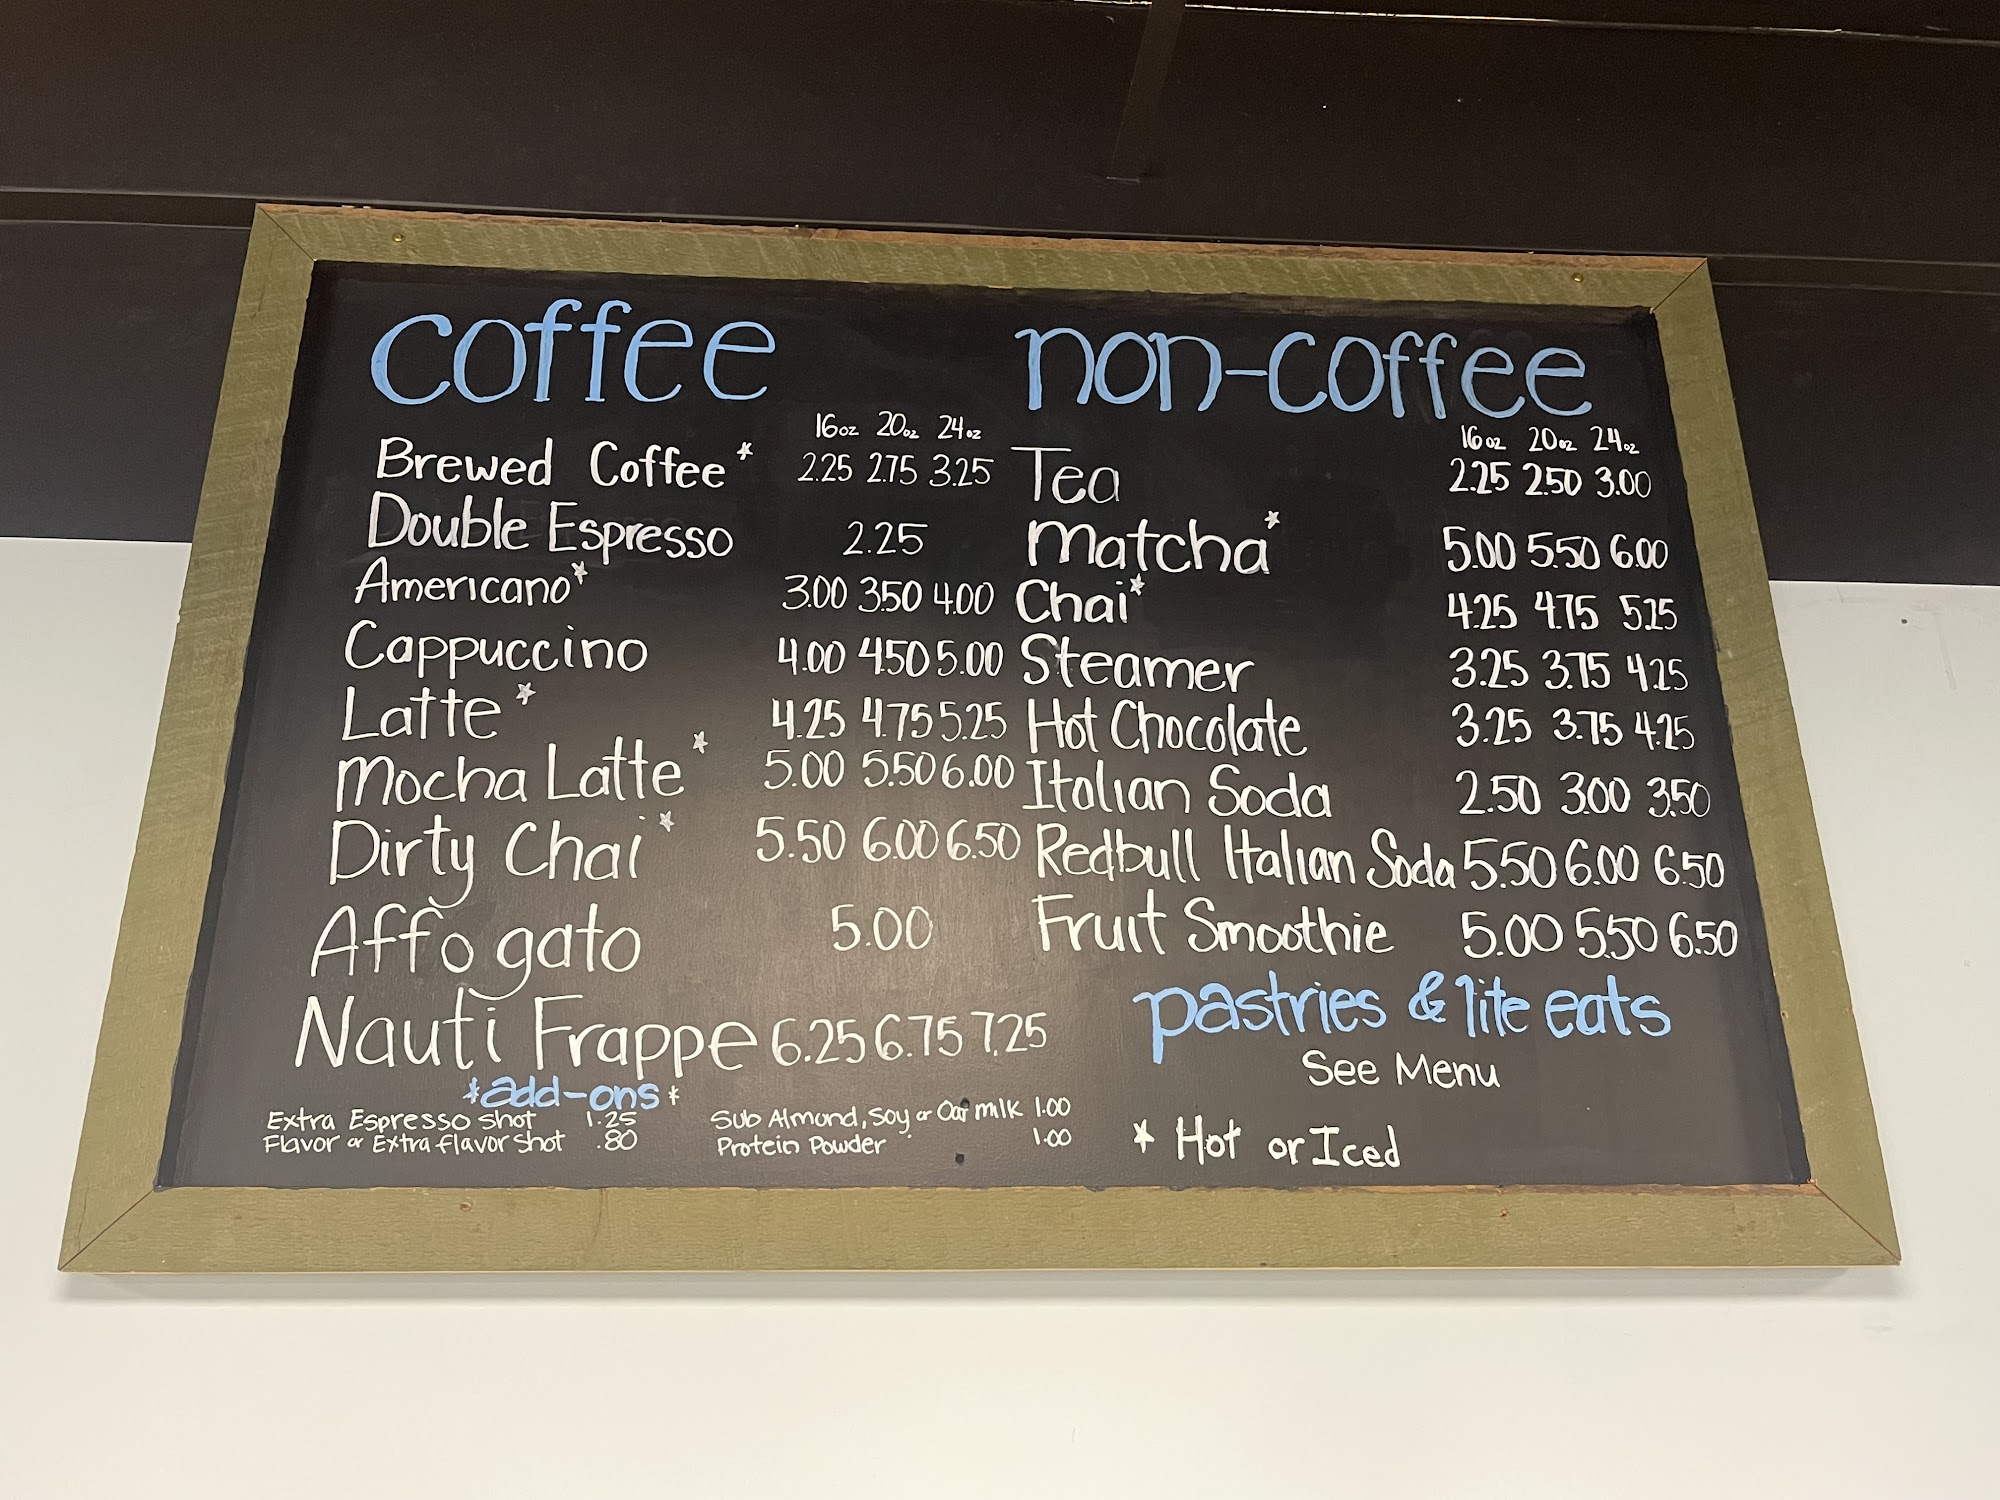 coffee
16oz 20oz 24oz
Brewed Coffee* 2.25 2.75 3.25
Double Espresso 2.25
Americano* 3.00 3.50 4.00
Cappuccino 4.00 4.50 5.00
Latte* 4.25 4.75 5.25
Mocha Latte* 5.00 5.50 6.00
Dirty Chai* 5.50 6.00 6.50
Affogato 5.00
Nauti Frappe 6.25 6.75 7.25
*add-ons*
Extra Espresso Shot 1.25
Flavor or Extra flavor Shot .80
Sub Almond, Soy or Oat milk 1.00
Protein Powder 1.00
non-coffee
16oz 20oz 24oz
Tea 2.25 2.50 3.00
Matcha* 5.00 5.50 6.00
Chai* 4.25 4.75 5.25
Steamer 3.25 3.75 4.25
Hot Chocolate 3.25 3.75 4.25
Italian Soda 2.50 3.00 3.50
Redbull Italian Soda 5.50 6.00 6.50
Fruit Smoothie 5.00 5.50 6.50
pastries & lite eats
See Menu
* Hot or Iced